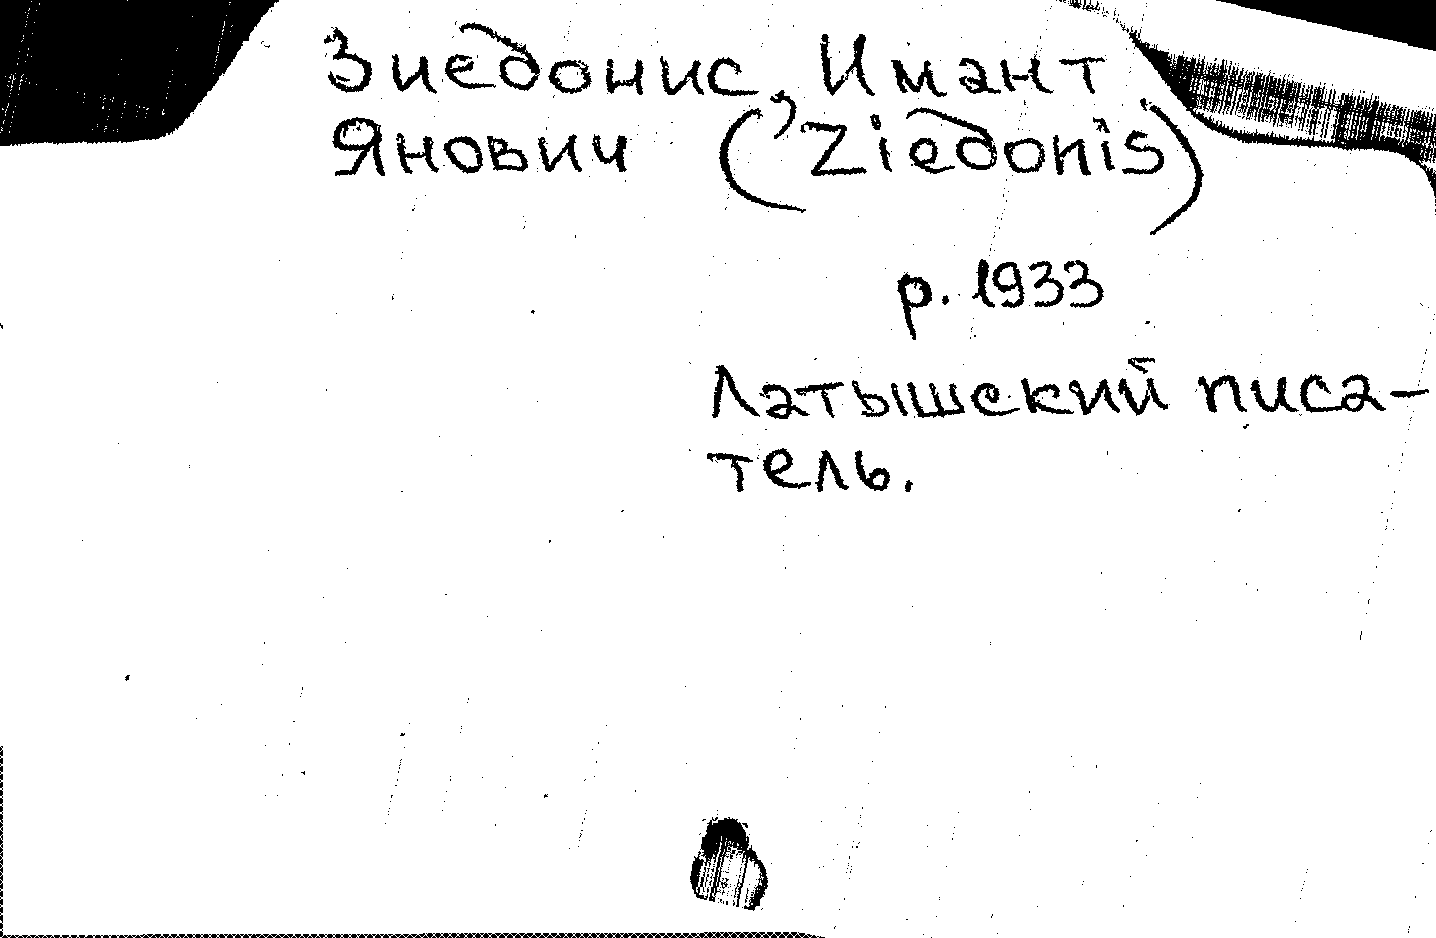 Зиедонис, Имант
Янович (Ziedonis)
р. 1933
Латышский писа-
тель.